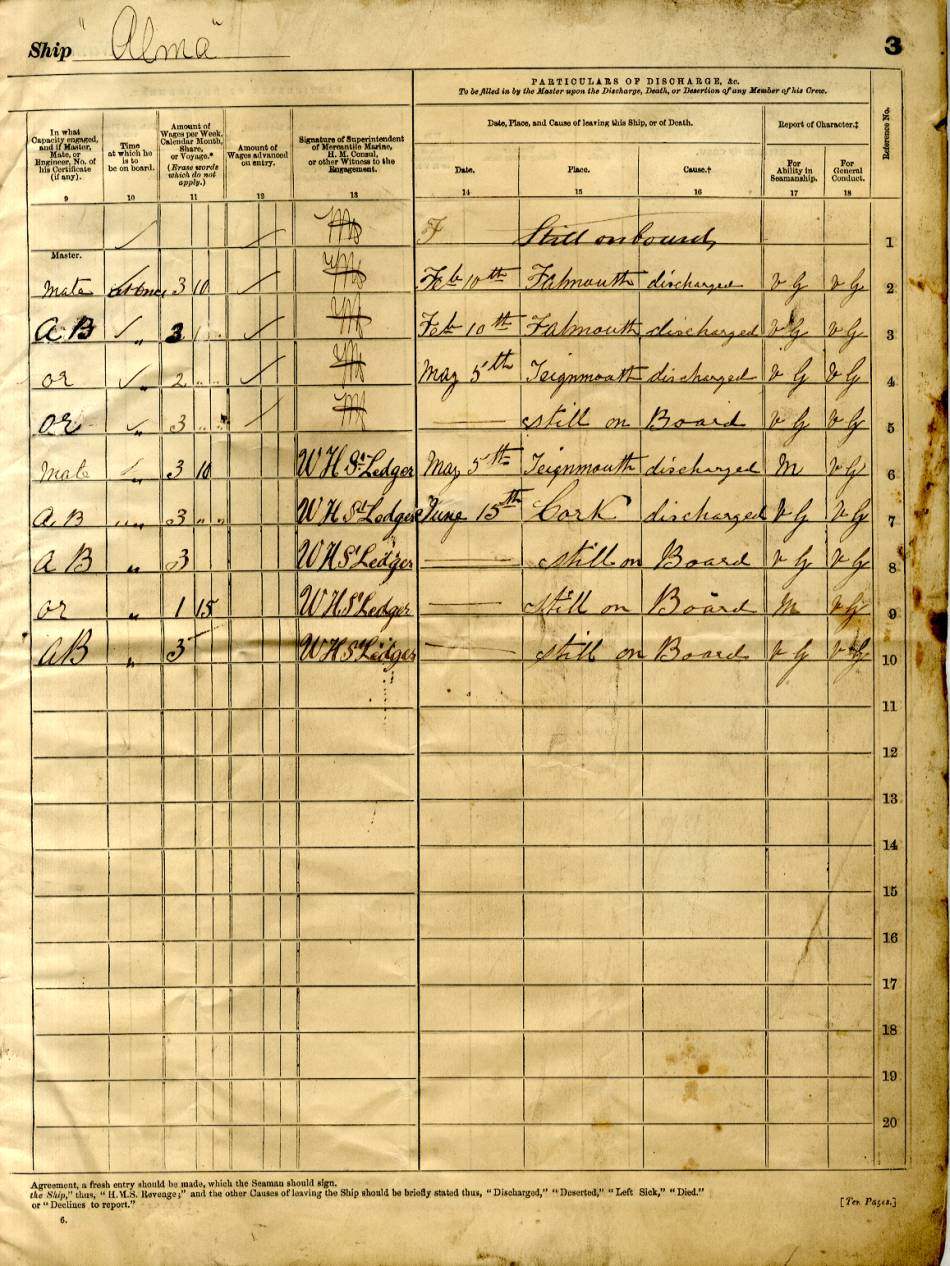 Ship "Alma" 3
PARTICULARS OF DISCHARGE, &c.
To be filled in by the Master upon the Discharge, Death, or Desertion of any Member of his Crew.
In what Capacity engaged, and if Master, Mate, or Engineer, No. of his Certificate (if any).
Time at which he is to be on board.
Amount of Wages per Week, Calendar Month, Share, or Voyage.* (Erase words which do not apply.)
Amount of Wages advanced on entry.
Signature of Superintendent of Mercantile Marine, H. M. Consul, or other Witness to the Engagement.
Date, Place, and Cause of leaving this Ship, or of Death.
Report of Character.‡
Reference No.
Date. Place. Cause.† For Ability in Seamanship. For General Conduct.
9 10 11 12 13 14 15 16 17 18
F Still on board 1
Master.
Mate at once 3 10 Feb 10th Falmouth discharged v G v G 2
A B " 3 Feb 10th Falmouth discharged v G v G 3
or " 2 " " May 5th Teignmouth discharged v G v G 4
or " 3 " " still on Board v G v G 5
Mate " 3 10 W H St Ledger May 5th Teignmouth discharged M v G 6
A B " 3 " " W H St Ledger June 15th Cork discharged v G v G 7
A B " 3 W H St Ledger still on Board v G v G 8
or " 1 15 W H St Ledger still on Board M v G 9
A B " 3 W H St Ledger still on Board v G v G 10
11
12
13
14
15
16
17
18
19
20
Agreement, a fresh entry should be made, which the Seaman should sign.
the Ship," thus, "H.M.S. Revenge;" and the other Causes of leaving the Ship should be briefly stated thus, "Discharged," "Deserted," "Left Sick," "Died."
or "Declines to report." [Ten Pages.]
6.